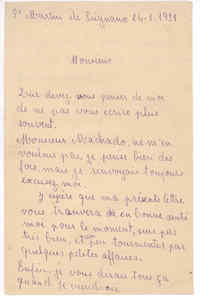 St Martin de Seignanx 24-8-1921
Monsieur
Que devez vous penser de moi
de ne pas vous écrire plus
souvent.
Monsieur Machado, ne m'en
voulons pas, je pense bien des
fois, mais je renvoyais toujours
excusez moi.
J'espère que ma présente lettre
vous trouvera de en bonne santé
moi pour le moment, suis pas
très bien, et peu tourmentée par
quelques petites affaires.
Enfin je vous dirai tout ça
quand je viendrai